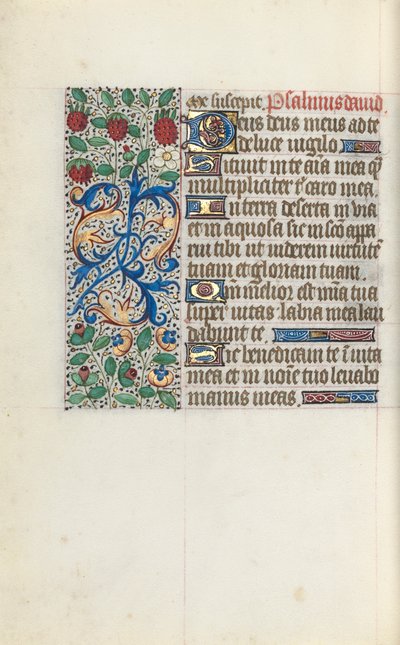 me suscepit. Psalmus david.
Deus deus meus ad te
de luce vigilo.
Sitivit in te aīa mea q̄
multipliciter t̄ caro mea.
In terra deserta in via
et in aquosa sic in scō appa
rui tibi ut viderem virtutē
tuam et gloriam tuam.
Qm̄ melior est mīa tua
super vitas labia mea lau
dabunt te.
Sic benedicam te ī vita
mea et in noīe tuo levabo
manus meas.